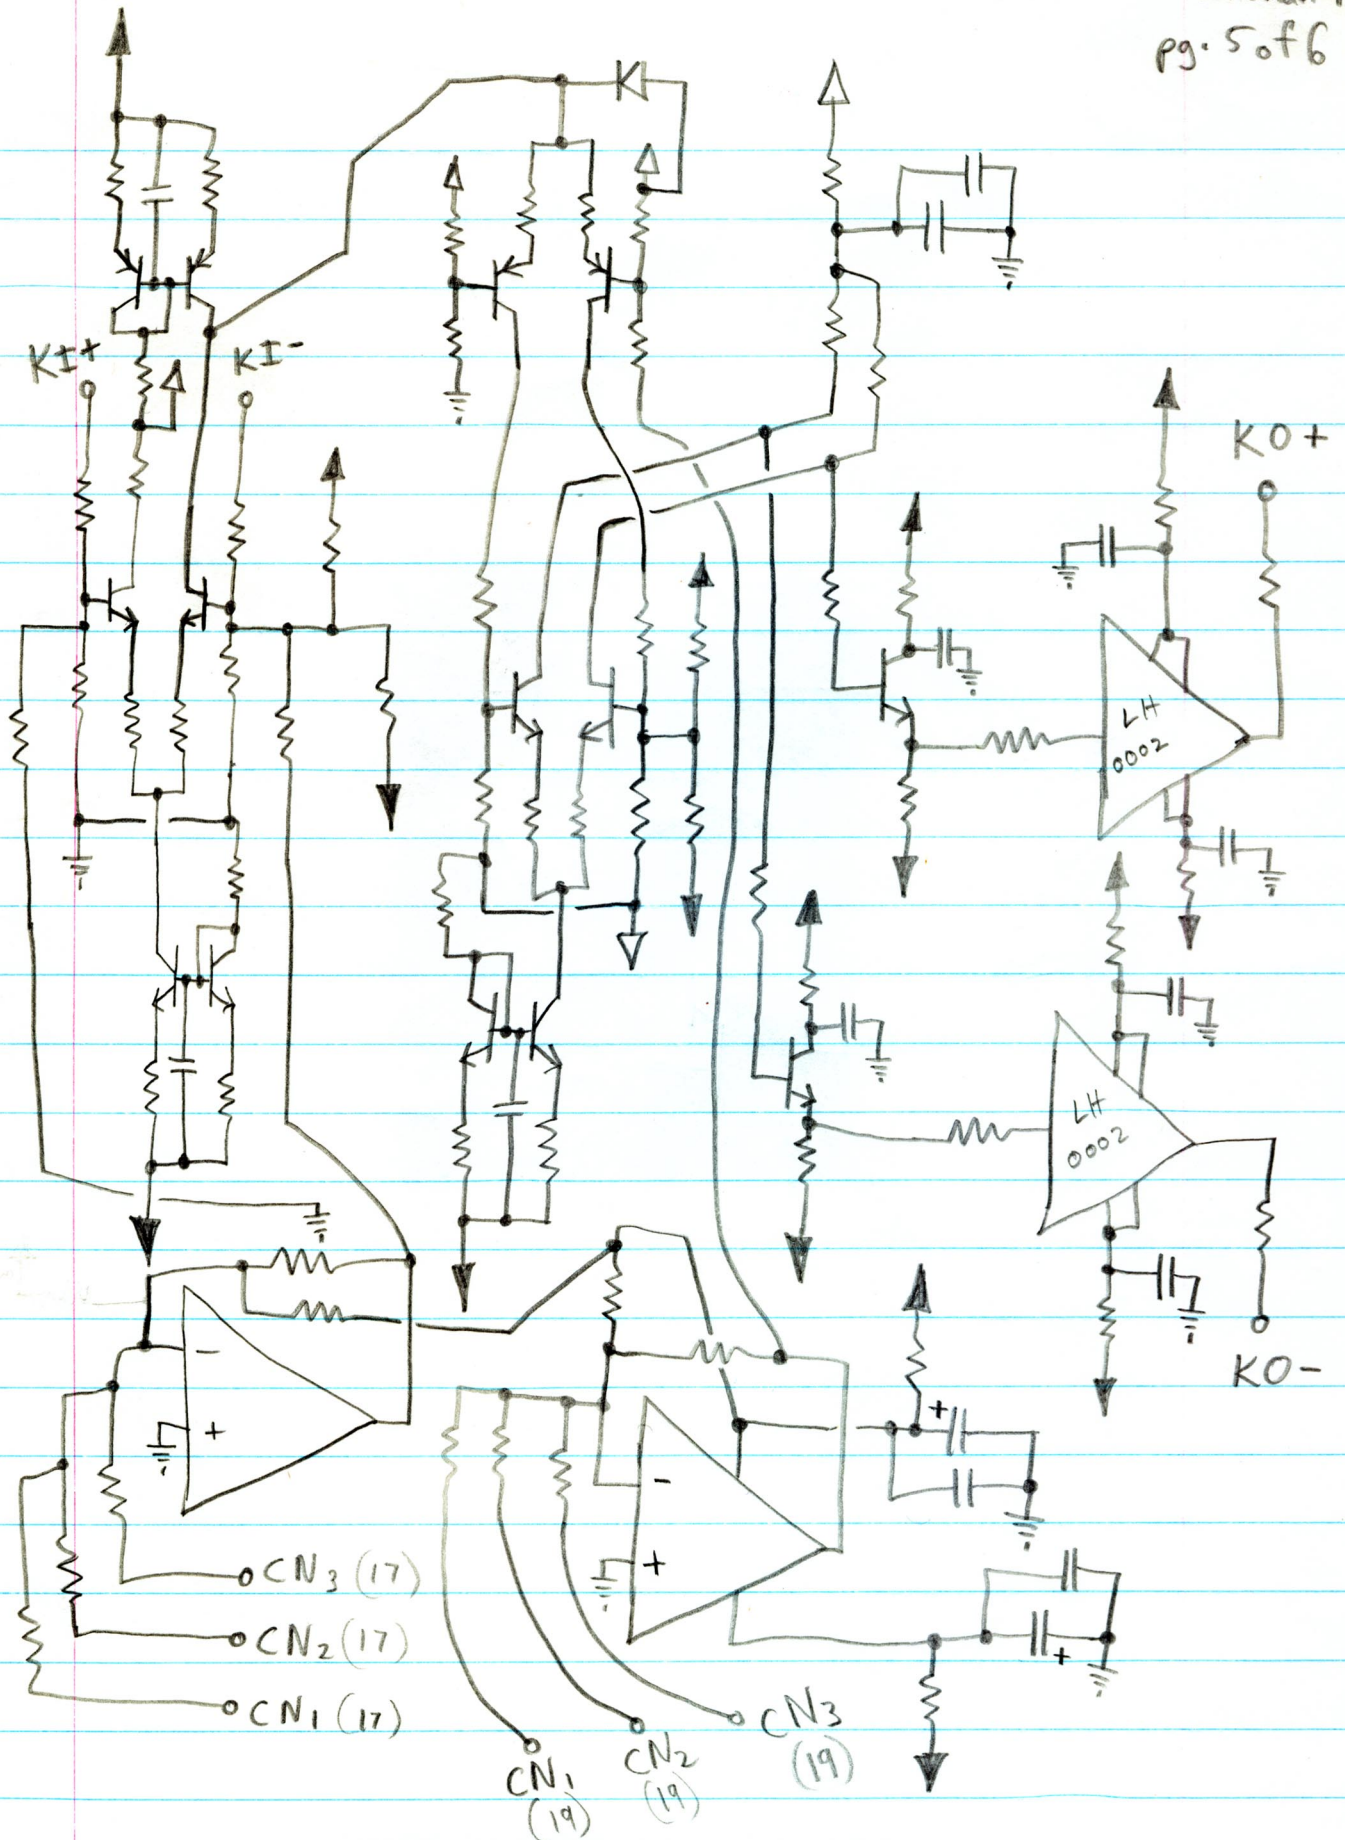 pg. 5 of 6
KI+
KI-
KO+
LH
0002
LH
0002
KO-
−
+
+
−
+
+
CN3 (17)
CN2 (17)
CN1 (17)
CN3
(19)
CN2
(19)
CN1
(19)